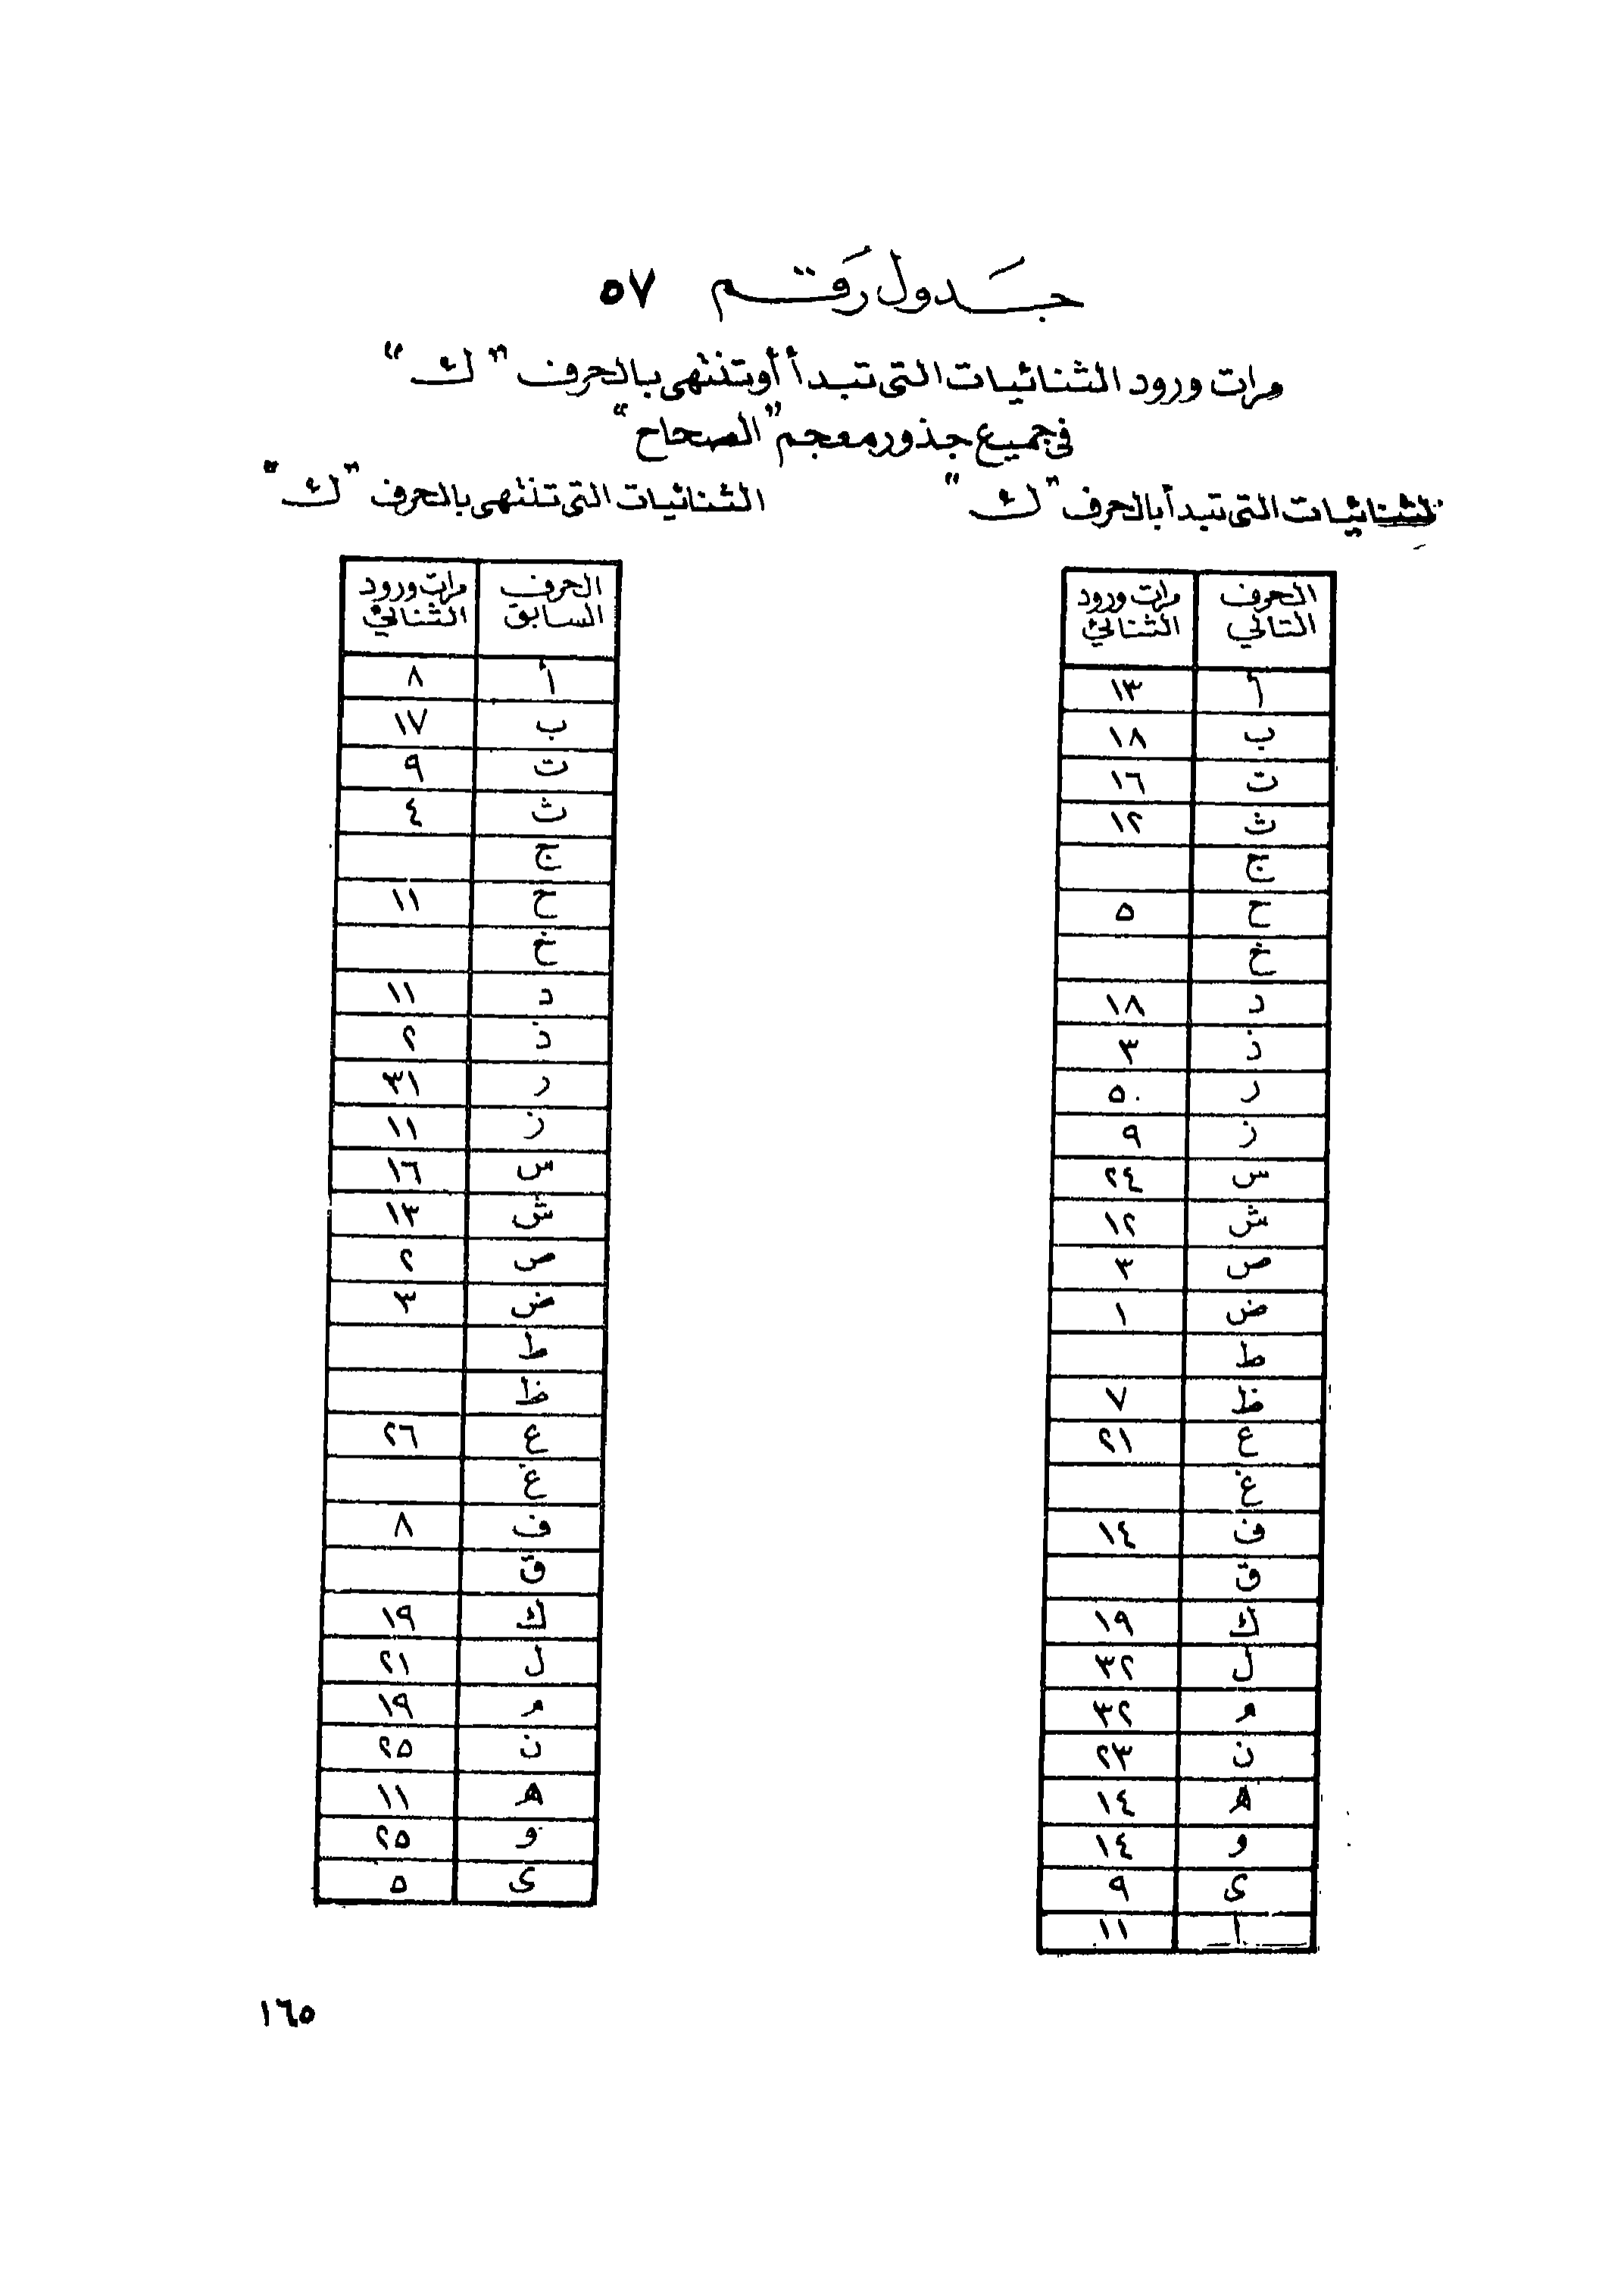 جدول رقم ٥٧
مرات ورود الثنائيات التى تبدأ أو تنتهى بالحرف "ك"
فى جميع جذور معجم "الصحاح"
الثنائيات التى تبدأ بالحرف "ك"
الحرف التالي مرات ورود الثنائي
أ ١٣
ب ١٨
ت ١٦
ث ١٢
ج
ح ٥
خ
د ١٨
ذ ٣
ر ٥٠
ز ٩
س ٢٤
ش ١٢
ص ٣
ض ١
ط
ظ ٧
ع ٢١
غ
ف ١٤
ق
ك ١٩
ل ٣٢
م ٣٢
ن ٢٣
ه ١٤
و ١٤
ى ٩
ا ١١
الثنائيات التى تنتهى بالحرف "ك"
الحرف السابق مرات ورود الثنائي
أ ٨
ب ١٧
ت ٩
ث ٤
ج
ح ١١
خ
د ١١
ذ ٢
ر ٣١
ز ١١
س ١٦
ش ١٣
ص ٢
ض ٣
ط
ظ
ع ٢٦
غ
ف ٨
ق
ك ١٩
ل ٢١
م ١٩
ن ٢٥
ه ١١
و ٢٥
ى ٥
١٦٥